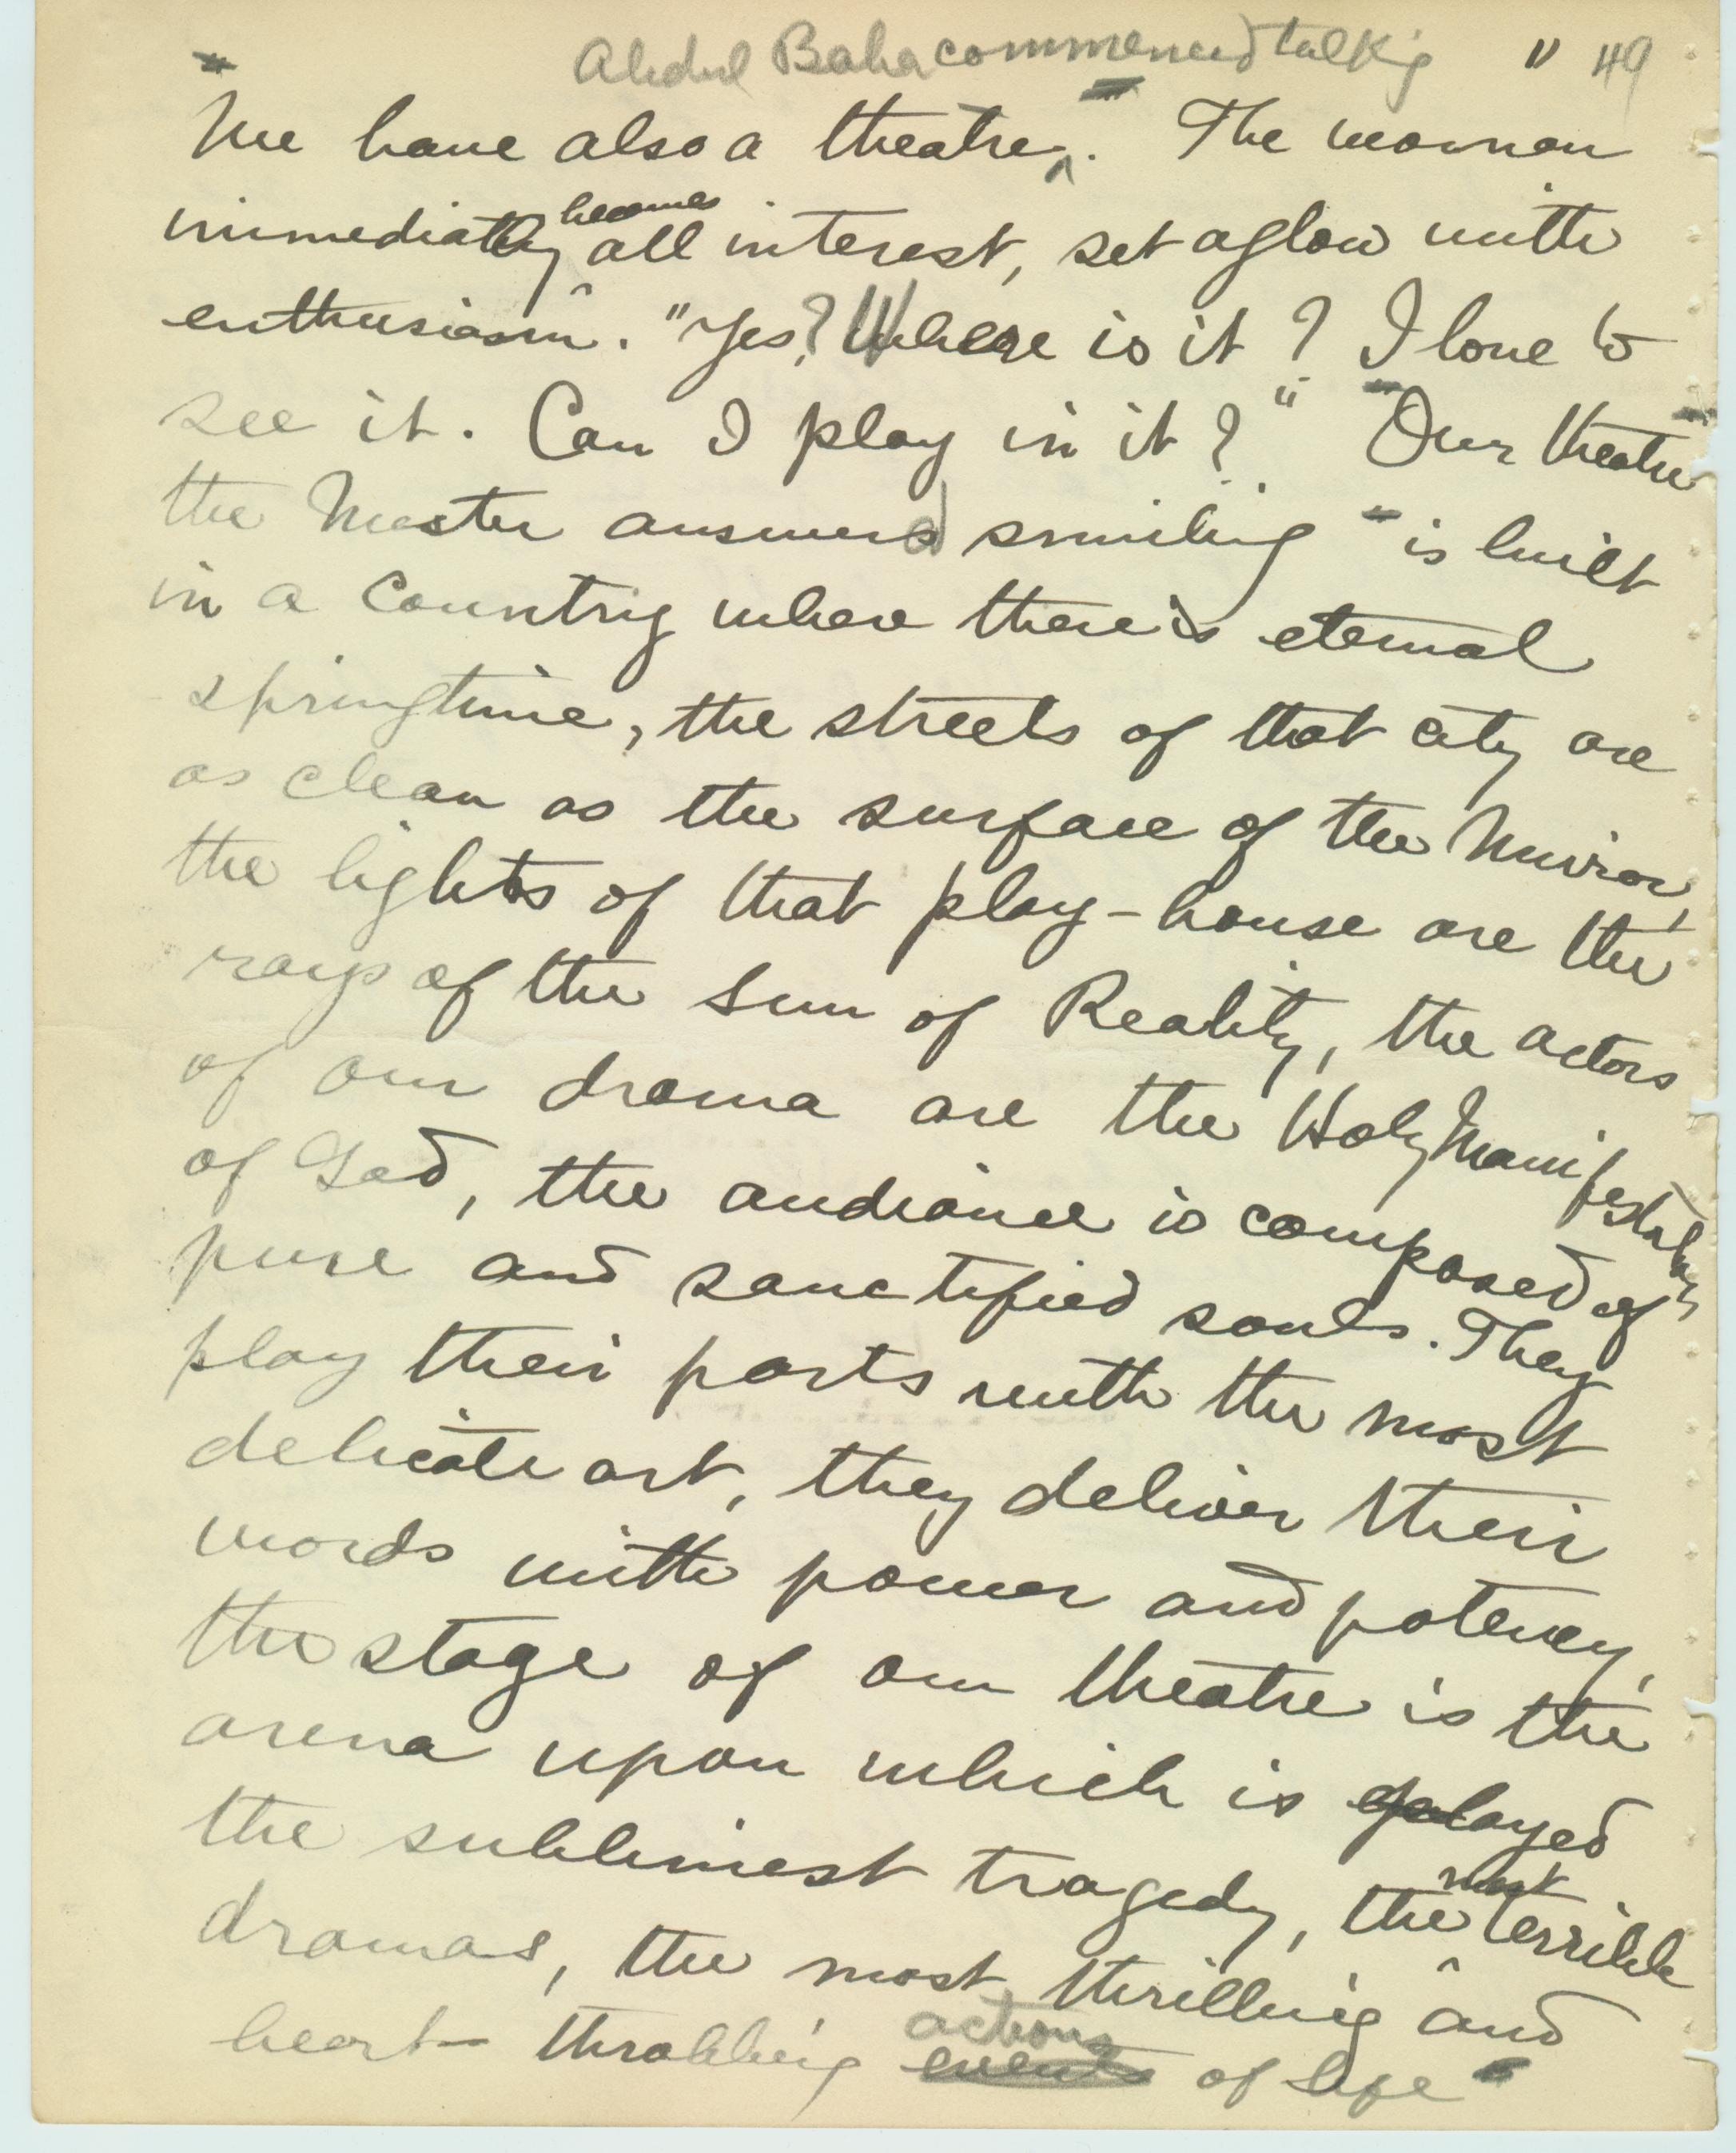 Abdul Baha commenced talk'g " 49
"We have also a theatre". The woman
becomes
immediately all interest, set aglow with
enthusiasm. "Yes? Where is it? I love to
see it. Can I play in it?" "Our theatre"
the Master answered smiling "is built
in a Country where there is eternal
springtime, the streets of that city are
as clean as the surface of the Mirror,
the lights of that play-house are the
rays of the Sun of Reality, the actors
of our drama are the Holy Manifestations
of God, the audiance is composed of
pure and sanctified souls. They
play their parts with the most
delicate art, they deliver their
words with power and potency,
the stage of our theatre is the
arena upon which is played
the sublimest tragedy, the most terrible
dramas, the most thrilling and
actions
heart-throbbing events of life"